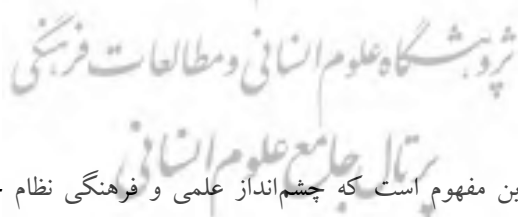 پژوهشگاه علوم انسانی و مطالعات فرهنگی
پرتال جامع علوم انسانی
ین مفهوم است که چشم‌انداز علمی و فرهنگی نظام